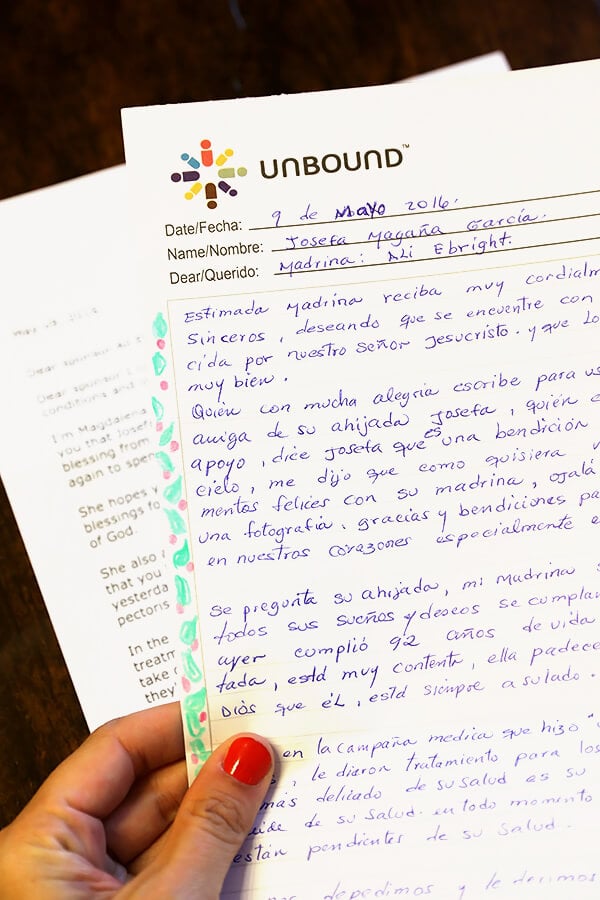 UNBOUND™
Date/Fecha: 9 de Mayo 2016.
Name/Nombre: Josefa Magaña García.
Dear/Querido: Madrina: Ali Ebright.
Estimada Madrina reciba muy cordialm
Sinceros, deseando que se encuentre con
cida por nuestro Señor Jesucristo. y que Lo
muy bien.
Quién con mucha alegria escribe para us
amiga de su ahijada Josefa, quién e
apoyo, dice Josefa que es una bendición
cielo, me dijo que como quisiera v
mentos felices con su madrina, ojalá
una fotografia. gracias y bendiciones pa
en nuestros corazones especialmente e
Se pregunta su ahijada, mi Madrina s
todos sus sueños y deseos se cumplan
ayer cumplió 92 años de vida
tada, está muy contenta, ella padece
Diós que él, está siempre a su lado.
en la campaña medica que hizo "
, le dieron tratamiento para los
más delicado de su salud es su
de su salud. en todo momento
están pendientes de su salud.
depedimos y le decimos
Dear sponsor
conditions and
I'm Magdalena
you that Josef
blessing from
again to spen
She hopes y
blessings fo
of God.
She also
that you
yesterda
pectoris
In the
treatm
take
they'